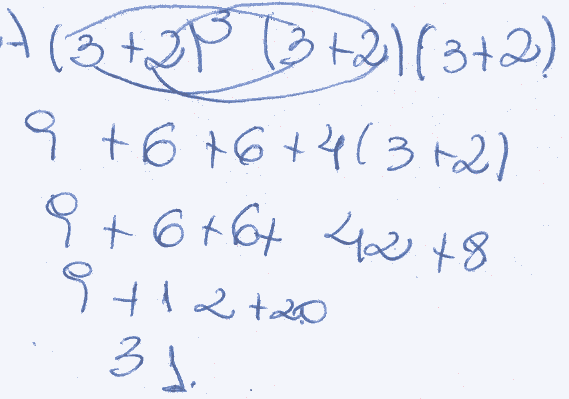 ) (3+2)³ (3+2)(3+2).
9 + 6 + 6 + 4(3+2)
9 + 6 + 6 + 42 + 8
9 + 12 + 20
31.